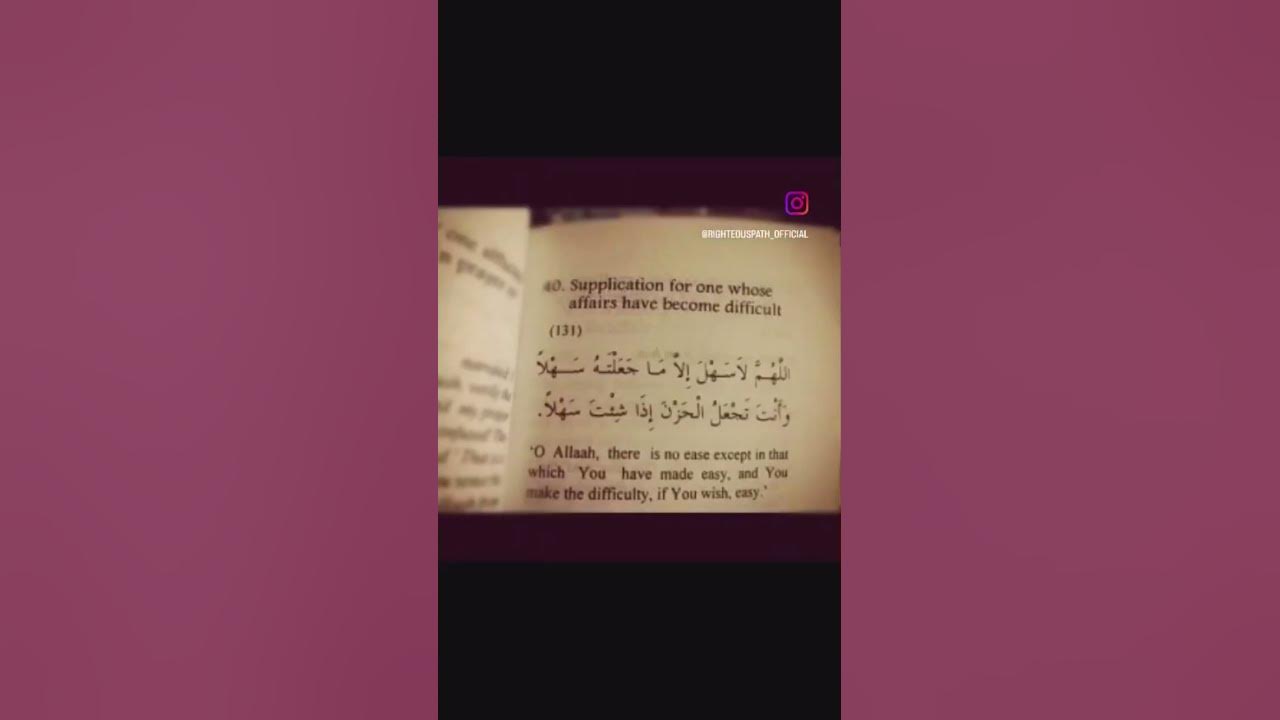 @RIGHTEOUSPATH_OFFICIAL
40. Supplication for one whose
affairs have become difficult
(131)
اللَّهُمَّ لاَسَهْلَ إِلاَّ مَا جَعَلْتَهُ سَهْلاً
وَأَنْتَ تَجْعَلُ الْحَزْنَ إِذَا شِئْتَ سَهْلاً.
'O Allaah, there is no ease except in that
which You have made easy, and You
make the difficulty, if You wish, easy.'